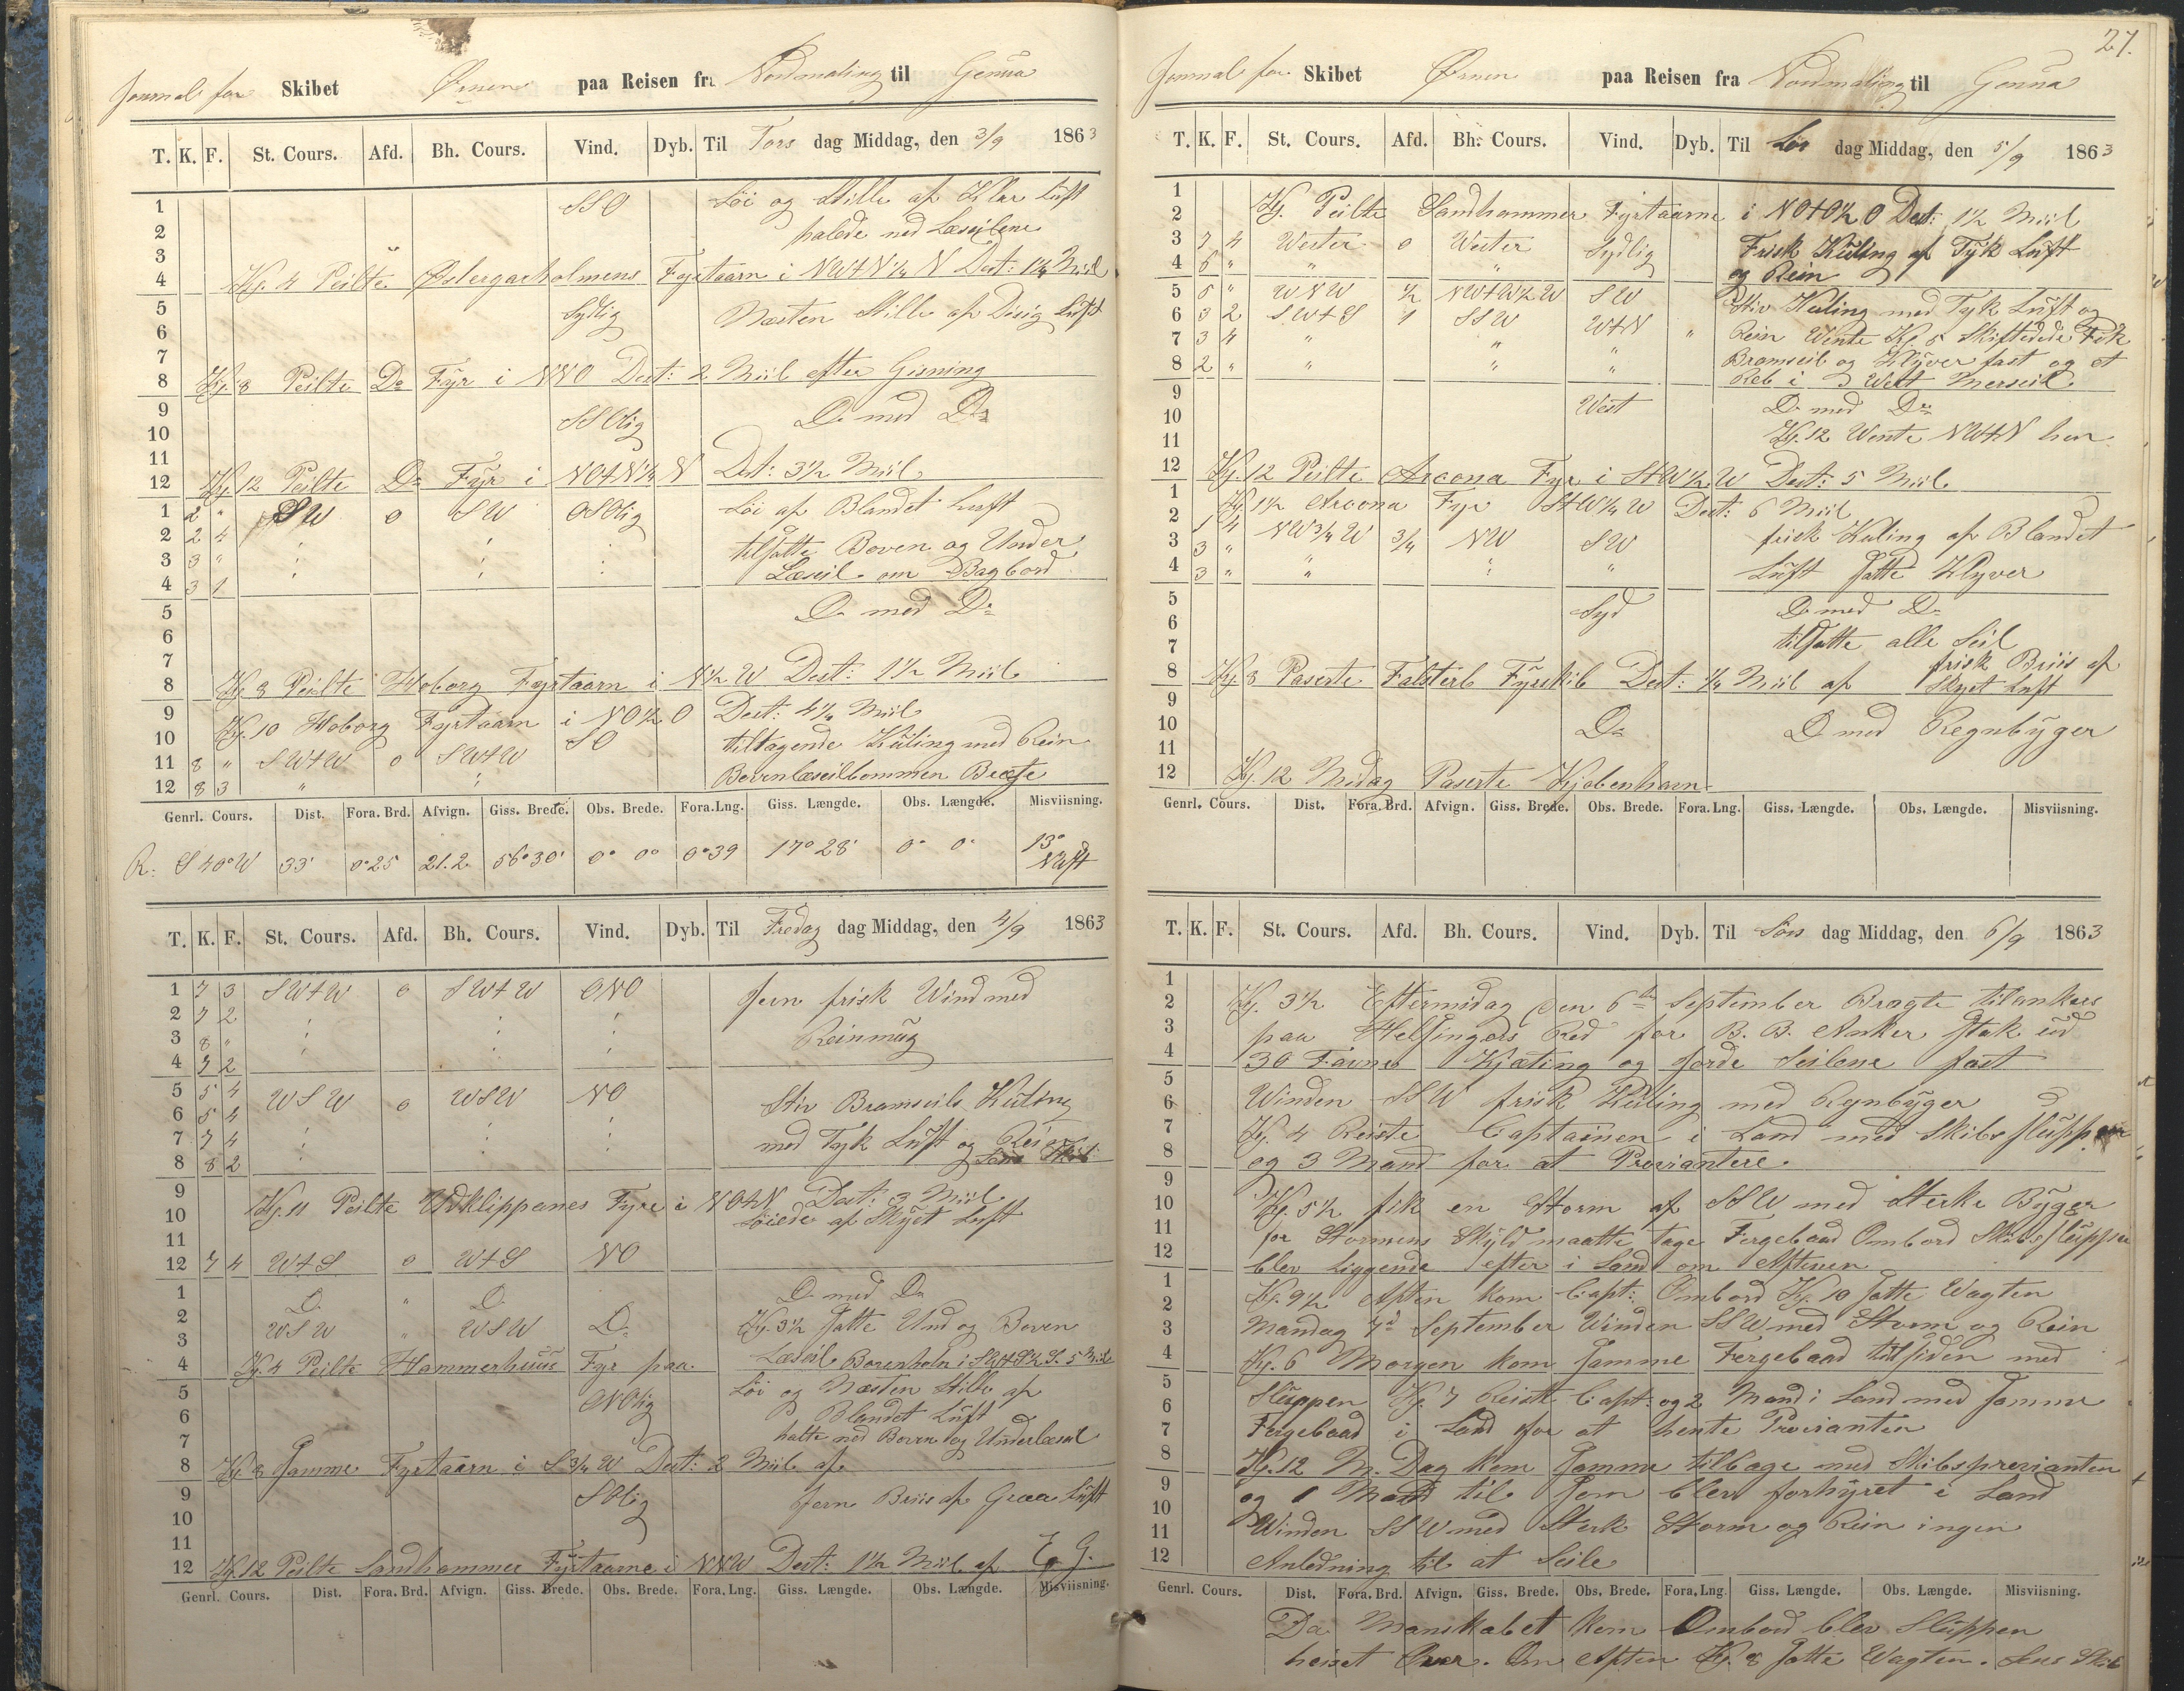 Journal for Skibet Ørnen paa Reisen fra Nordmaling til Genua
T. K. F. St. Cours. Afd. Bh. Cours. Vind. Dyb. Til Tors dag Middag, den 3/9 1863
1 SSO Löi og Stille af Klar Luft
2 halede ned Læseilene
3
4 Kg. 4 Peilte Østergarholmens Fyrtaarn i NWtN 1/4 N Dest: 1 1/4 Miil
5 Sydlig Næsten Stille af Disig Luft
6
7
8 Kg. 8 Peilte Do Fyr i NNO Dest: 2 Miil efter Gisning
9 SSOlig D. med Do
10
11
12 Kg. 12 Peilte Do Fyr i NOtN 1/4 N Dest: 3 1/2 Miil
1 2 " SW 0 SW OSOlig Löi af Blandet Luft
2 2 4 tilsatte Boven og Under
3 3 " Læseil om Bagbord
4 3 1
5 D. med Do
6
7
8 Kg. 8 Peilte Hoborg Fyrtaarn i N 1/2 W Dest: 1 1/2 Miil
9 Kg. 10 Hoborg Fyrtaarn i NO 1/2 O Dest: 4 1/4 Miil
10 SO tiltagende Kuling med Rein
11 8 " SWtW 0 SWtW Bovenlæseilbommen Bræk
12 8 3 "
Genrl. Cours. Dist. Fora. Brd. Afvign. Giss. Brede. Obs. Brede. Fora. Lng. Giss. Længde. Obs. Længde. Misviisning.
R: S 40° W 33' 0°25 21.2 56°30' 0° 0° 0°39 17°28' 0° 0° 13° NWst
T. K. F. St. Cours. Afd. Bh. Cours. Vind. Dyb. Til Fredag dag Middag, den 4/9 1863
1 7 3 SWtW 0 SWtW ONO Jevn frisk Wind med
2 7 2 Reinmug
3 8 "
4 7 2
5 5 4 WSW 0 WSW NO Stiv Bramseils Kuling
6 5 4
7 7 4 med Tyk Luft og Rein
8 8 2 Lens Skib
9 Kg. 11 Peilte Udklippenes Fyre i NOtN Dest: 3 Miil
10 Löiede af Skyet Luft
11
12 7 4 WtS 0 WtS NO
1 D. " D. D. med Do
2 WSW " WSW D. Kg. 3 1/2 Satte Und og Boven
3 Læseil Borenholm i SWtS 1/2 S. 5 Miil
4 Kg. 4 Peilte Hammerhuus Fyr paa
5 ONOlig Löi og Næsten Stille af
6 Blandet Luft
7 halte ned Boven og Underlæseil
8 Kg. 8 Samme Fyrtaarn i S 3/4 W Dest: 2 Miil af
9 SOlig Jevn Briis af Graa Luft
10
11
12 Kg. 12 Peilte Sandhammer Fyrtaarne i NNW Dest: 1 1/2 Miil af E. G.
Genrl. Cours. Dist. Fora. Brd. Afvign. Giss. Brede. Obs. Brede. Fora. Lng. Giss. Længde. Obs. Længde. Misviisning.
27.
Journal for Skibet Ørnen paa Reisen fra Nordmaling til Genua
T. K. F. St. Cours. Afd. Bh. Cours. Vind. Dyb. Til Lör dag Middag, den 5/9 1863
1 Kg. Peilte Sandhammer Fyrtaarne i NOtO 1/2 O Dest: 1 1/2 Miil
2
3 7 4 Wester 0 Wester Sydlig Frisk Kuling af Tyk Luft
4 6 " " " og Rein
5 5 " WNW 1/2 NWtW 1/2 W SW Stiv Kuling med Tyk Luft og
6 3 2 SWtS 1 SSW WtN Rein Wente Kg. 5 Skiftedede Fik
7 3 4 " " " Bramseil og Klyver fast og et
8 2 " " " " Reb i Wert Merseil
9 West D. med Do
10 Kg. 12 Wente NWtN hen
11
12 Kg. 12 Peilte Arcona Fyr i StW 1/2 W Dest: 5 Miil
1 Kg. 1 1/2 Arcona Fyr StW 1/4 W Dest: 6 Miil
2 1 4 NW 3/4 W 3/4 NW SW frisk Kuling af Blandet
3 3 "
4 3 " " " " Luft Satte Klyver
5 Syd D. med Do
6 tilsatte alle Seil
7 frisk Briis af
8 Kg. 8 Paserte Falsterb Fyrskib Dest: 1/4 Miil af Skyet Luft
9
10 Do D. med Regnbyger
11
12 Kg. 12 Midag Paserte Kjøbenhavn
Genrl. Cours. Dist. Fora. Brd. Afvign. Giss. Brede. Obs. Brede. Fora. Lng. Giss. Længde. Obs. Længde. Misviisning.
T. K. F. St. Cours. Afd. Bh. Cours. Vind. Dyb. Til Sön dag Middag, den 6/9 1863
1
2 Kg. 3 1/2 Eftermidag den 6te September Bragte tilankers
3 paa Helsingørs Red for B. B. Anker Stak ud
4 30 Favne Kjæting og Jorde Seilene fast
5
6 Winden SSW frisk Kuling med Regnbyger
7 Kg. 4 Reiste Captainen i Land med Skibssluppen
8 og 3 Mand for at Proviantere.
9
10 Kg. 5 1/2 fik en Storm af SSW med Sterke Byger
11 for Stormens Skyld maatte tage Fergebaad Ombord Skibssluppen
12 blev Liggende efter i Land om Aftenen
1 Kg. 9 1/2 Aften kom Capt: Ombord Kg. 10 Satte Wagten
2
3 Mandag 7d September Winden SSW med Storm og Rein
4 Kg. 6 Morgen kom Samme Fergebaad tilsiden med
5
6 Sluppen Kg. 7 Reiste Capt: og 2 Mand i Land med Samme
7 Fergebaad i Land for at hente Provianten
8 Kg. 12 M. Dag kom Samme tilbage med Skibsprovianten
9 og 1 Mand til Som blev forhyret i Land
10
11 Winden SSW med Sterk Storm og Rein ingen
12 Anledning til at Seile
Genrl. Cours. Dist. Fora. Brd. Afvign. Giss. Brede. Obs. Brede. Fora. Lng. Giss. Længde. Obs. Længde. Misviisning.
Da Manskabet kom Ombord blev Sluppen
heiset Over. Om Aften Kg. 8 Satte Wagten. Lens Skib